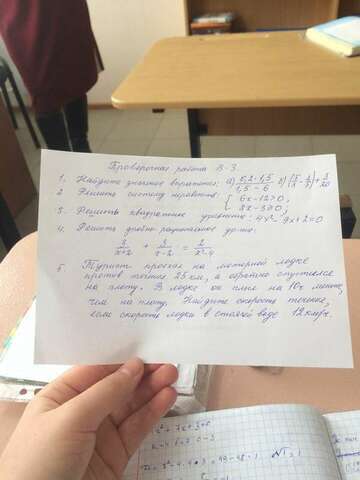 Проверочная работа В-3.
1. Найдите значение выражения: а) 5,2·1,5 / 1,5-6 б) (15/ - 1/3)+3/20
2. Решить систему неравенств: { 6x-12>0, 3x-3≥0;
3. Решить квадратное уравнение: 4x²-9x+2=0
4. Решить дробно-рациональное ур-ие:
3/x+2 + 3/x-2 = 2/x²-4
5. Турист проплыл на моторной лодке
против течения 25 км, а обратно спустился
на плоту. В лодке он плыл на 10ч меньше,
чем на плоту. Найдите скорость течения,
если скорость лодки в стоячей воде 12км/ч.
x²+7x+3=0